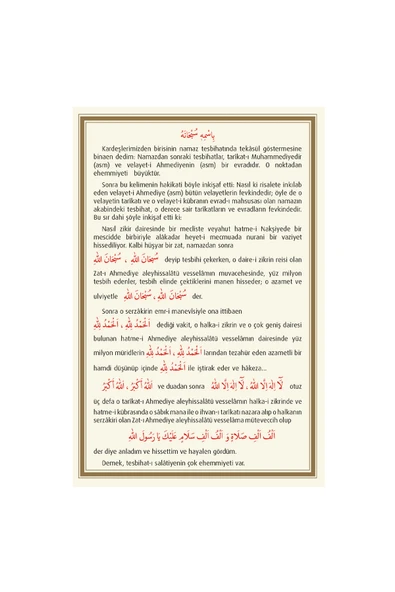 بِاسْمِهِ سُبْحَانَهُ
Kardeşlerimizden birisinin namaz tesbihatında tekâsül göstermesine
binaen dedim: Namazdan sonraki tesbihatlar, tarîkat-ı Muhammediyedir
(asm) ve velayet-i Ahmediyenin (asm) bir evradıdır. O noktadan
ehemmiyeti büyüktür.
Sonra bu kelimenin hakikati böyle inkişaf etti: Nasıl ki risalete inkılab
eden velayet-i Ahmediye (asm) bütün velayetlerin fevkindedir; öyle de o
velayetin tarîkatı ve o velayet-i kübranın evrad-ı mahsusası olan namazın
akabindeki tesbihat, o derece sair tarîkatların ve evradların fevkindedir.
Bu sır dahi şöyle inkişaf etti ki:
Nasıl zikir dairesinde bir mecliste veyahut hatme-i Nakşiyede bir
mescidde birbiriyle alâkadar heyet-i mecmuada nurani bir vaziyet
hissediliyor. Kalbi hüşyar bir zat, namazdan sonra
سُبْحَانَ اللّٰهِ ، سُبْحَانَ اللّٰهِ deyip tesbihi çekerken, o daire-i zikrin reisi olan
Zat-ı Ahmediye aleyhissalâtü vesselâmın muvacehesinde, yüz milyon
tesbih edenler, tesbih elinde çektiklerini manen hisseder; o azamet ve
ulviyetle سُبْحَانَ اللّٰهِ ، سُبْحَانَ اللّٰهِ der.
Sonra o serzâkirin emr-i manevîsiyle ona ittibaen
اَلْحَمْدُ لِلّٰهِ ، اَلْحَمْدُ لِلّٰهِ dediği vakit, o halka-i zikrin ve o çok geniş dairesi
bulunan hatme-i Ahmediye aleyhissalâtü vesselâmın dairesinde yüz
milyon müridlerin اَلْحَمْدُ لِلّٰهِ ، اَلْحَمْدُ لِلّٰهِ larından tezahür eden azametli bir
hamdi düşünüp içinde اَلْحَمْدُ لِلّٰهِ ile iştirak eder ve hâkeza...
اَللّٰهُ اَكْبَرُ ، اَللّٰهُ اَكْبَرُ ve duadan sonra لَٓا اِلٰهَ اِلَّا اللّٰهُ ، لَٓا اِلٰهَ اِلَّا اللّٰهُ otuz
üç defa o tarîkat-ı Ahmediye aleyhissalâtü vesselâmın halka-i zikrinde ve
hatme-i kübrasında o sâbık mana ile o ihvan-ı tarîkatı nazara alıp o halkanın
serzâkiri olan Zat-ı Ahmediye aleyhissalâtü vesselâma müteveccih olup
اَلْفُ اَلْفِ صَلَاةٍ وَ اَلْفُ اَلْفِ سَلَامٍ عَلَيْكَ يَا رَسُولَ اللّٰهِ
der diye anladım ve hissettim ve hayalen gördüm.
Demek, tesbihat-ı salâtiyenin çok ehemmiyeti var.